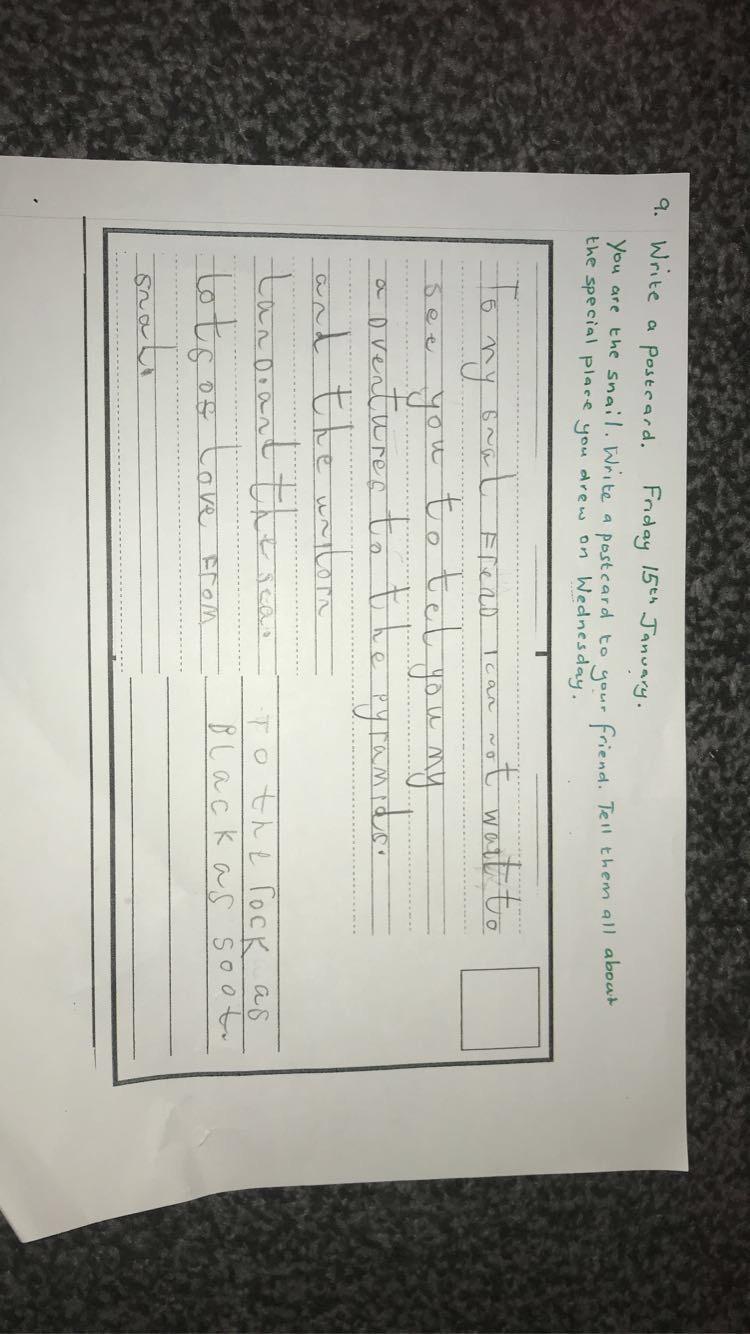 9. Write a postcard. Friday 15th January.
You are the snail. Write a postcard to your friend. Tell them all about
the special place you drew on Wednesday.
To my snal Frend I can not wait to
see you to tel you my
adventures to the pyramids.
and the
land.ant the sea.
lots of love From
snal.
To the rock as
Black as soot.